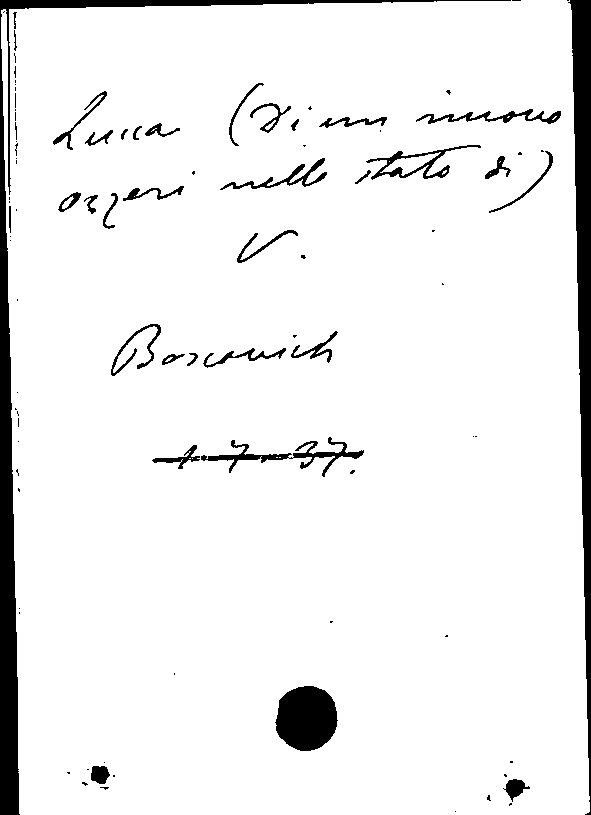 Lucca (Di un nuovo
Ozzeri nello stato di)
V.
Boscovich
1-7-37.